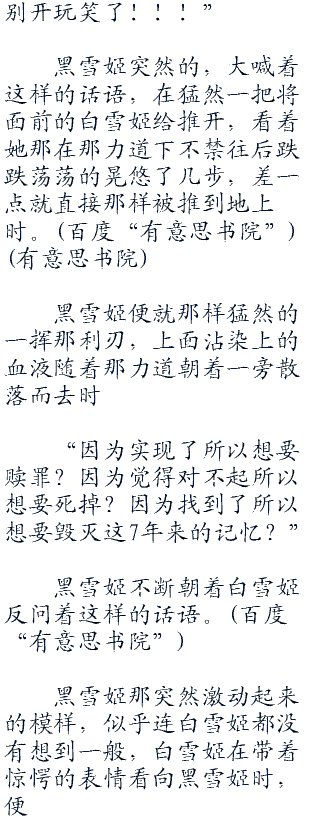 别开玩笑了！！！”
黑雪姬突然的，大喊着
这样的话语，在猛然一把将
面前的白雪姬给推开，看着
她那在那力道下不禁往后跌
跌荡荡的晃悠了几步，差一
点就直接那样被推到地上
时。(百度“有意思书院”)
(有意思书院)
黑雪姬便就那样猛然的
一挥那利刃，上面沾染上的
血液随着那力道朝着一旁散
落而去时
“因为实现了所以想要
赎罪？因为觉得对不起所以
想要死掉？因为找到了所以
想要毁灭这7年来的记忆？”
黑雪姬不断朝着白雪姬
反问着这样的话语。(百度
“有意思书院”)
黑雪姬那突然激动起来
的模样，似乎连白雪姬都没
有想到一般，白雪姬在带着
惊愕的表情看向黑雪姬时，
便